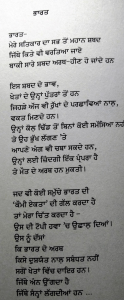 ਭਾਰਤ
ਭਾਰਤ-
ਮੇਰੇ ਸਤਿਕਾਰ ਦਾ ਸਭ ਤੋਂ ਮਹਾਨ ਸ਼ਬਦ
ਜਿੱਥੇ ਕਿਤੇ ਵੀ ਵਰਤਿਆ ਜਾਏ
ਬਾਕੀ ਸਾਰੇ ਸ਼ਬਦ ਅਰਥ-ਹੀਣ ਹੋ ਜਾਂਦੇ ਹਨ
ਇਸ ਸ਼ਬਦ ਦੇ ਭਾਵ,
ਖੇਤਾਂ ਦੇ ਉਨ੍ਹਾਂ ਪੁੱਤਰਾਂ ਤੋਂ ਹਨ
ਜਿਹੜੇ ਅੱਜ ਵੀ ਰੁੱਖਾਂ ਦੇ ਪਰਛਾਵਿਆਂ ਨਾਲ,
ਵਕਤ ਮਿਣਦੇ ਹਨ।
ਉਨ੍ਹਾਂ ਕੋਲ ਢਿੱਡ ਤੋਂ ਬਿਨਾਂ ਕੋਈ ਸਮੱਸਿਆ ਨਹੀਂ
ਤੇ ਉਹ ਭੁੱਖ ਲੱਗਣ 'ਤੇ
ਆਪਣੇ ਅੰਗ ਵੀ ਚਬਾ ਸਕਦੇ ਹਨ,
ਉਨ੍ਹਾਂ ਲਈ ਜ਼ਿੰਦਗੀ ਇੱਕ ਪ੍ਰੰਪਰਾ ਹੈ
ਤੇ ਮੌਤ ਦੇ ਅਰਥ ਹਨ ਮੁਕਤੀ।
ਜਦ ਵੀ ਕੋਈ ਸਮੁੱਚੇ ਭਾਰਤ ਦੀ
'ਕੌਮੀ ਏਕਤਾ' ਦੀ ਗੱਲ ਕਰਦਾ ਹੈ
ਤਾਂ ਮੇਰਾ ਚਿੱਤ ਕਰਦਾ ਹੈ -
ਉਸ ਦੀ ਟੋਪੀ ਹਵਾ 'ਚ ਉਛਾਲ ਦਿਆਂ।
ਉਸ ਨੂੰ ਦੱਸਾਂ
ਕਿ ਭਾਰਤ ਦੇ ਅਰਥ
ਕਿਸੇ ਦੁਸ਼ਯੰਤ ਨਾਲ ਸਬੰਧਤ ਨਹੀਂ
ਸਗੋਂ ਖੇਤਾਂ ਵਿੱਚ ਦਾਇਰ ਹਨ।
ਜਿੱਥੇ ਅੰਨ ਉੱਗਦਾ ਹੈ
ਜਿੱਥੇ ਸੰਨ੍ਹਾਂ ਲੱਗਦੀਆਂ ਹਨ ...